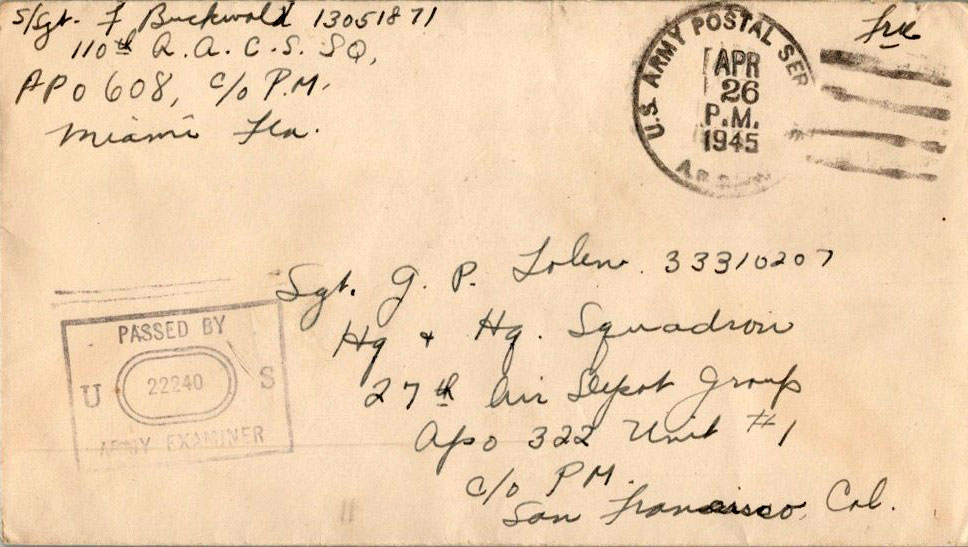 S/Sgt. F Buckwald 13051871
110th R.A.C.S. SQ,
APO 608, c/o P.M.
Miami Fla.
Free
U.S. ARMY POSTAL SER
APR
26
P.M.
1945
Sgt. G. P. 33310207
Hq + Hq. Squadron
27th Air Depot Group
Apo 322 Unit #1
c/o PM.
San Francisco, Cal.
PASSED BY
U 22240 S
ARMY EXAMINER